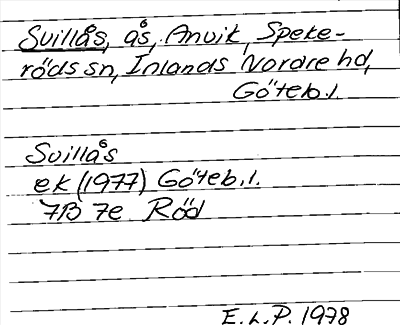 Svillås, ås, Anvik, Speke-
röds sn, Inlands Nordre hd,
Göteb. l.
Svillås
ek (1977) Göteb. l.
7B 7e Röd
E.L.P. 1978